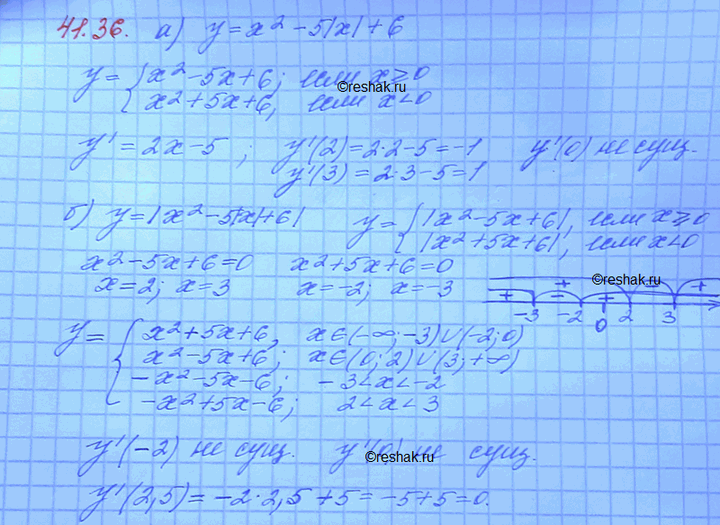 41.36. а) y = x² - 5|x| + 6
y = { x² - 5x + 6; если x ≥ 0
x² + 5x + 6, если x < 0
©reshak.ru
y' = 2x - 5 ; y'(2) = 2·2 - 5 = -1 y'(0) не сущ.
y'(3) = 2·3 - 5 = 1
б) y = |x² - 5|x| + 6| y = { |x² - 5x + 6|, если x ≥ 0
|x² + 5x + 6|, если x < 0
x² - 5x + 6 = 0 x² + 5x + 6 = 0
x = 2; x = 3 x = -2; x = -3
©reshak.ru
+ - +
+ - +
-3 -2 0 2 3
y = { x² + 5x + 6, x ∈ (-∞; -3) ∪ (-2; 0)
x² - 5x + 6; x ∈ (0; 2) ∪ (3; +∞)
-x² - 5x - 6; -3 < x < -2
-x² + 5x - 6; 2 < x < 3
y'(-2) не сущ. y'(0) не сущ.
©reshak.ru
y'(2,5) = -2·2,5 + 5 = -5 + 5 = 0.